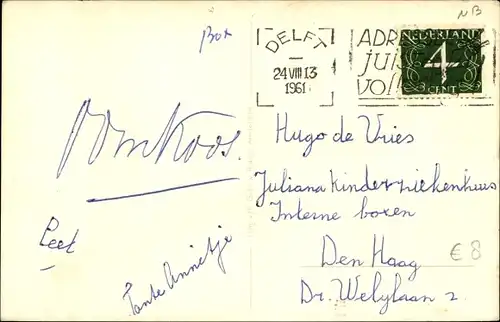 NB
DELFT
24 VIII 13
1961
ADR
juis
voll
NEDERLAND
4
CENT
Oom Koos.
Peet
Tante Annetje
Hugo de Vries
Juliana Kinderziekenhuis
Interne boxen
Den Haag
Dr. Welylaan 2
€ 8